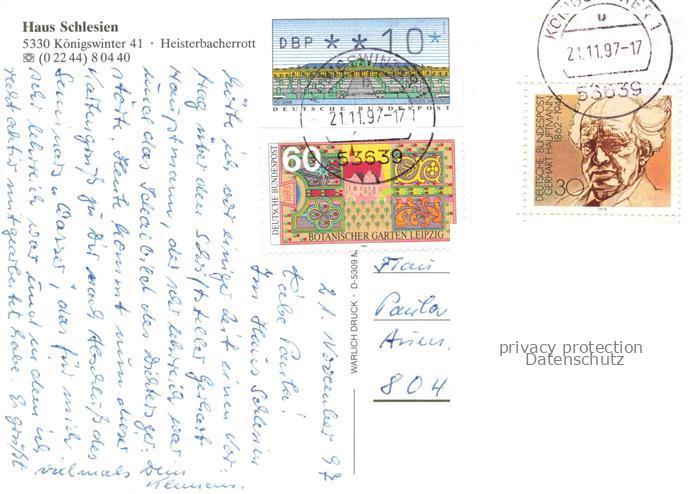 Haus Schlesien
5330 Königswinter 41 · Heisterbacherrott
☏ (0 22 44) 8 04 40
DBP * * 10*
DEUTSCHE BUNDESPOST
21.11.97-17
53639
60
DEUTSCHE BUNDESPOST
BOTANISCHER GARTEN LEIPZIG
KÖNIGSWINTER 1
u
21.11.97-17
53639
DEUTSCHE BUNDESPOST
GERHART HAUPTMANN
1862-1946
30
21. November 97
Liebe Paula!
Im Haus Schlesien
hörte ich vor einiger Zeit einen Vor-
trag über den Schriftsteller Gerhart
Hauptmann, der sehr lehrreich war
und das Schaubild des Dichters
Heute kommt nun dieser
zu Dir nach Abschluß des
Seminars Wasser, das für mich
sehr lehrreich war und in dem ich
mitgearbeitet habe. Es grüßt
vielmals Dein
Klemens.
WARLICH DRUCK · D-5309 M
Frau
Paula
804
privacy protection
Datenschutz